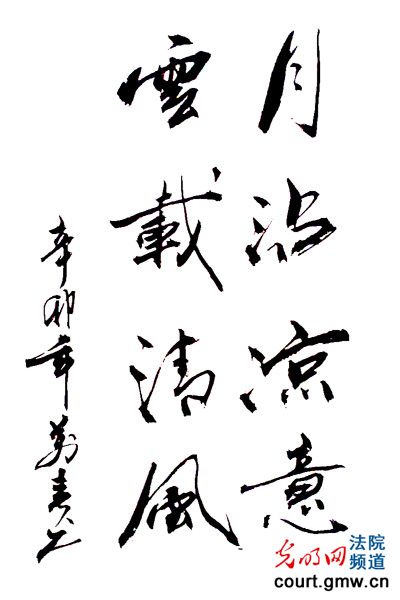 月沾凉意
雲載清風
辛卯年
光明网
法院
频道
court.gmw.cn